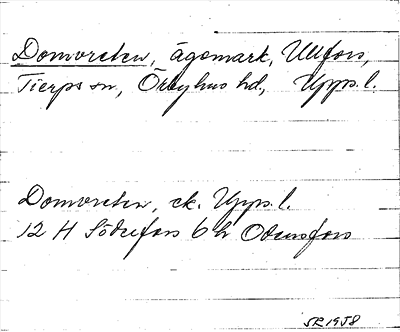 Domvreten, ägomark, Ullfors,
Tierps sn, Örbyhus hd, Upps. l.
Domvreten, ek. Upps. l.
12 H Söderfors 6 h Odensfors
SR 1958